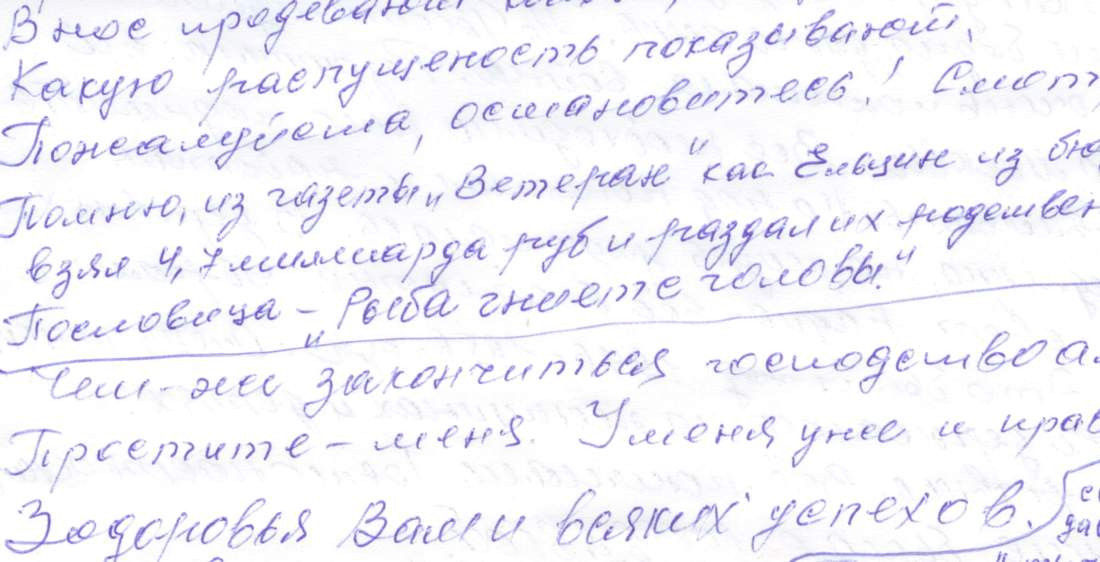 В нос продевают
Какую распущеность показывают.
Пожалуйста, остановитесь! Смот
Помню, из газеты „Ветеран" как Ельцин из бю
взял 4,7 миллиарда руб и раздал их родствен
Пословица – „Рыба гниет с головы."
Чем-же закончиться господство
Простите – меня. У меня уже и
Здоровья Вам и всяких успехов.